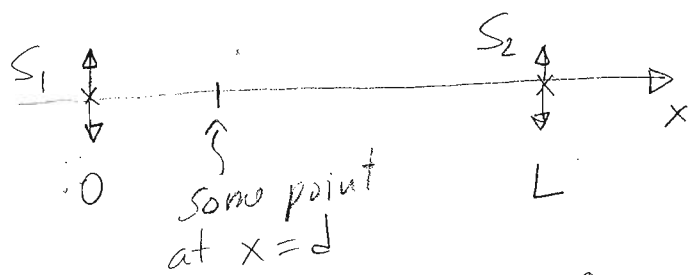 S₁
S₂
x
O
L
some point
at x = d